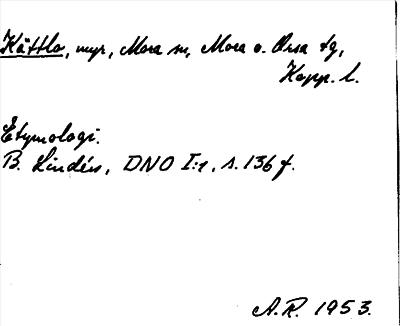 Kättlo, myr, Mora sn, Mora o. Orsa tg,
Kopp. l.
Etymologi.
B. Lindén, DNO I:1, s. 136 f.
A.R. 1953.